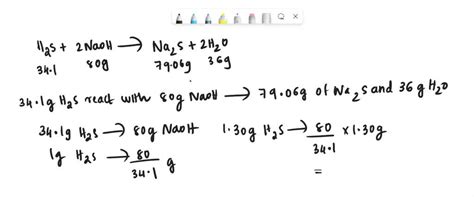 H₂S + 2NaOH ⟶ Na₂S + 2H₂O
34.1 80g 79.06g 36g
34.1g H₂S react with 80g NaOH ⟶ 79.06g of Na₂S and 36g H₂O
34.1g H₂S ⟶ 80g NaOH 1.30g H₂S ⟶ 80/34.1 × 1.30g
1g H₂S ⟶ 80/34.1 g =